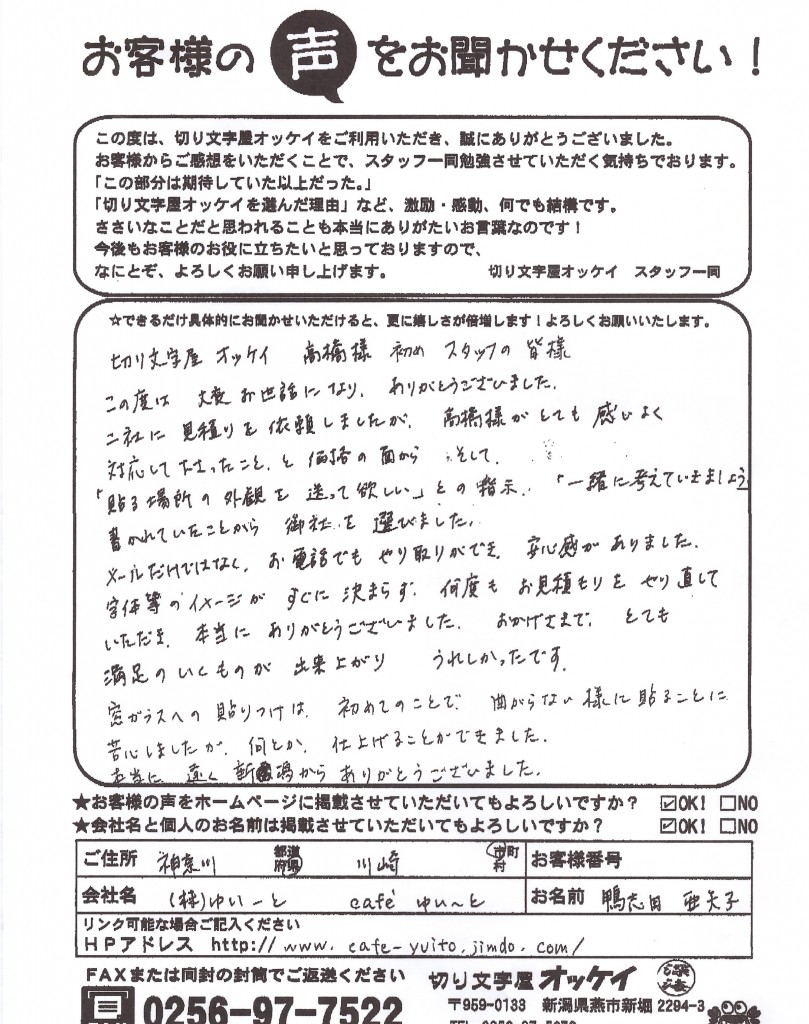 お客様の声をお聞かせください！
この度は、切り文字屋オッケイをご利用いただき、誠にありがとうございました。
お客様からご感想をいただくことで、スタッフ一同勉強させていただく気持ちでおります。
「この部分は期待していた以上だった。」
「切り文字屋オッケイを選んだ理由」など、激励・感動、何でも結構です。
ささいなことだと思われることも本当にありがたいお言葉なのです！
今後もお客様のお役に立ちたいと思っておりますので、
なにとぞ、よろしくお願い申し上げます。 切り文字屋オッケイ スタッフ一同
☆できるだけ具体的にお聞かせいただけると、更に嬉しさが倍増します！よろしくお願いいたします。
切り文字屋 オッケイ 高橋様 初め スタッフの 皆様
この度は 大変 お世話になり、ありがとうございました。
二社に 見積りを 依頼しましたが、高橋様が とても 感じよく
対応して下さったこと、と 価格の 面から そして、
「貼る場所の 外観を 送って欲しい」との 指示、「一緒に考えていきましょう
書かれていたことから 御社を 選びました。
メールだけではなく、お電話でも やり取りができ、安心感が ありました。
字体等の イメージが すぐに 決まらず、何度も お見積もりを やり直して
いただき、本当に ありがとうございました。おかげさまで、とても
満足のいくものが 出来上がり うれしかったです。
窓ガラスへの 貼りつけは、初めてのことで 曲がらない様に 貼ることに
苦心しましたが、何とか、仕上げることができました。
本当に 遠く 新潟から ありがとうございました。
★お客様の声をホームページに掲載させていただいてもよろしいですか？ ☑OK! □NO
★会社名と個人のお名前は掲載させていただいてもよろしいですか？ ☑OK! □NO
ご住所 神奈川 都道府県 川崎 市町村 お客様番号
会社名 (株)ゆいーと café ゆぃ〜と お名前 鴨志田 亜矢子
リンク可能な場合ご記入ください
HPアドレス http://www.cafe-yuito.jimdo.com/
FAXまたは同封の封筒でご返送ください 切り文字屋オッケイ
0256-97-7522 〒959-0133 新潟県燕市新堀2294-3